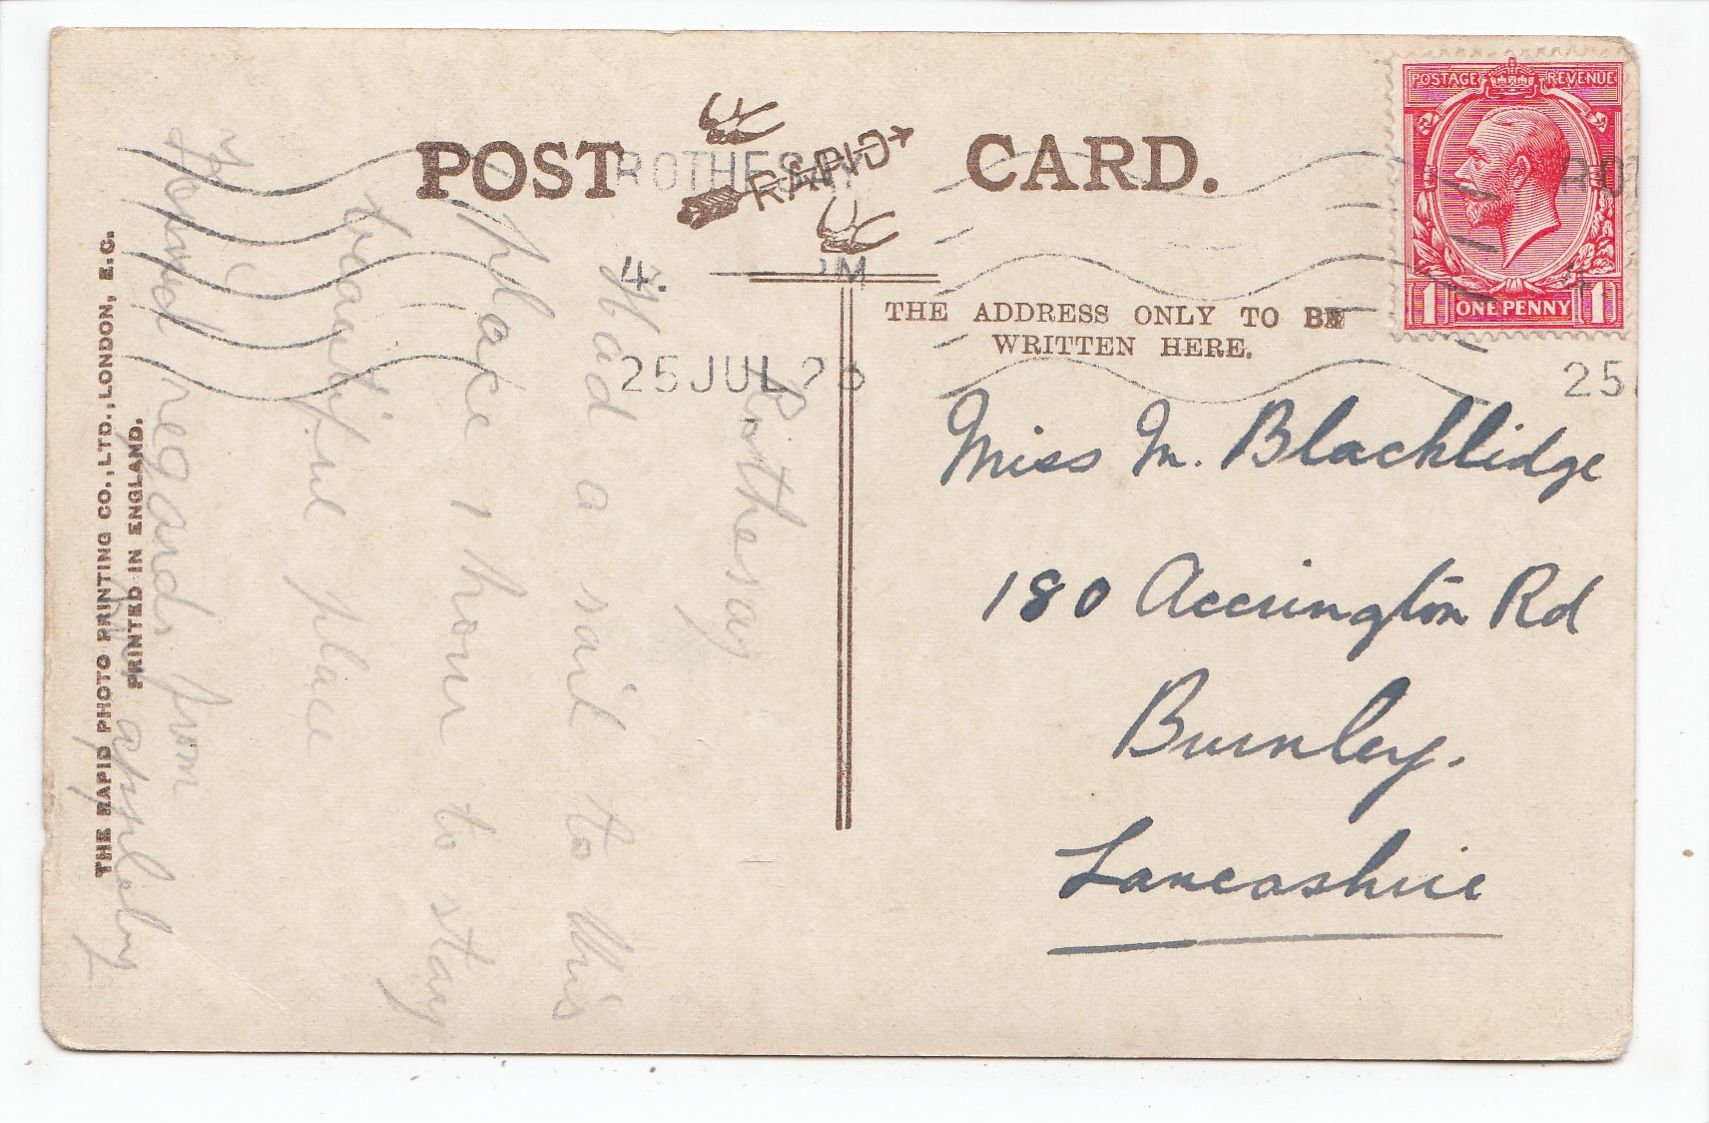 POST CARD.
RAPID
ROTHESAY
4. PM
25 JUL 23
POSTAGE REVENUE
1 ONE PENNY 1
ROT
25
THE ADDRESS ONLY TO BE
WRITTEN HERE.
Miss M. Blacklidge
180 Accrington Rd
Burnley.
Lancashire
Rothesay
Had a sail to this
place 1 hour to stay
beautiful place
Kind regards from
appleby
THE RAPID PHOTO PRINTING CO., LTD., LONDON, E.C.
PRINTED IN ENGLAND.